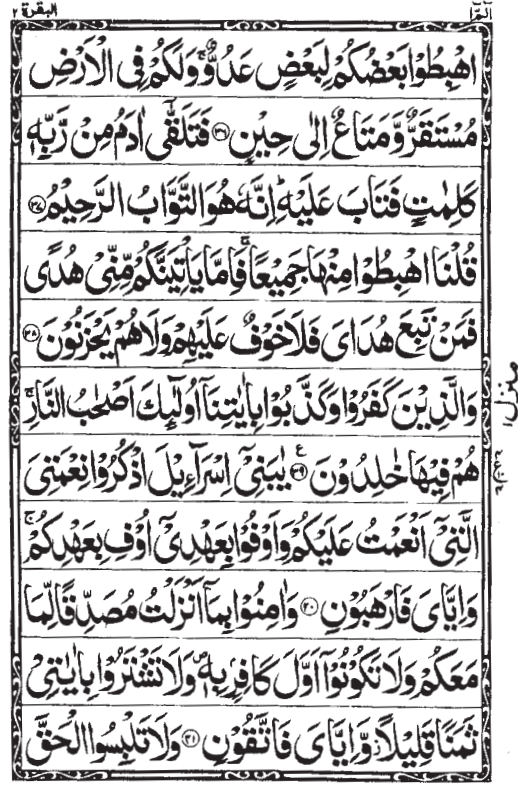 الٓمّٓ ١
البقرة ٢
اهْبِطُوْا بَعْضُكُمْ لِبَعْضٍ عَدُوٌّ ۚ وَلَكُمْ فِی الْاَرْضِ
مُسْتَقَرٌّ وَّمَتَاعٌ اِلٰی حِیْنٍ ﴿۳۶﴾ فَتَلَقّٰۤی اٰدَمُ مِنْ رَّبِّهٖ
كَلِمٰتٍ فَتَابَ عَلَیْهِ ؕ اِنَّهٗ هُوَ التَّوَّابُ الرَّحِیْمُ ﴿۳۷﴾
قُلْنَا اهْبِطُوْا مِنْهَا جَمِیْعًا ۚ فَاِمَّا یَاْتِیَنَّكُمْ مِّنِّیْ هُدًی
فَمَنْ تَبِعَ هُدَایَ فَلَا خَوْفٌ عَلَیْهِمْ وَلَا هُمْ یَحْزَنُوْنَ ﴿۳۸﴾
وَالَّذِیْنَ كَفَرُوْا وَكَذَّبُوْا بِاٰیٰتِنَاۤ اُولٰٓئِكَ اَصْحٰبُ النَّارِ ۚ
هُمْ فِیْهَا خٰلِدُوْنَ ﴿۳۹﴾ ع یٰبَنِیْۤ اِسْرَآءِیْلَ اذْكُرُوْا نِعْمَتِیَ
الَّتِیْۤ اَنْعَمْتُ عَلَیْكُمْ وَاَوْفُوْا بِعَهْدِیْۤ اُوْفِ بِعَهْدِكُمْ ۚ
وَاِیَّایَ فَارْهَبُوْنِ ﴿۴۰﴾ وَاٰمِنُوْا بِمَاۤ اَنْزَلْتُ مُصَدِّقًا لِّمَا
مَعَكُمْ وَلَا تَكُوْنُوْۤا اَوَّلَ كَافِرٍۭ بِهٖ ۪ وَلَا تَشْتَرُوْا بِاٰیٰتِیْ
ثَمَنًا قَلِیْلًا ؗ وَّاِیَّایَ فَاتَّقُوْنِ ﴿۴۱﴾ وَلَا تَلْبِسُوا الْحَقَّ
منزل ۱